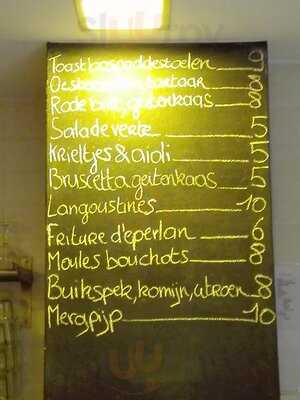 Toast bospaddestoelen 9
tartaar 8
Rode biet, geitenkaas 8
Salade verte 5
Krieltjes & aioli 5
Bruscetta geitenkaas 5
Langoustines 10
Friture d'eperlan 6
Moules bouchots 8
Buikspek, komijn, citroen 8
Mergpijp 10